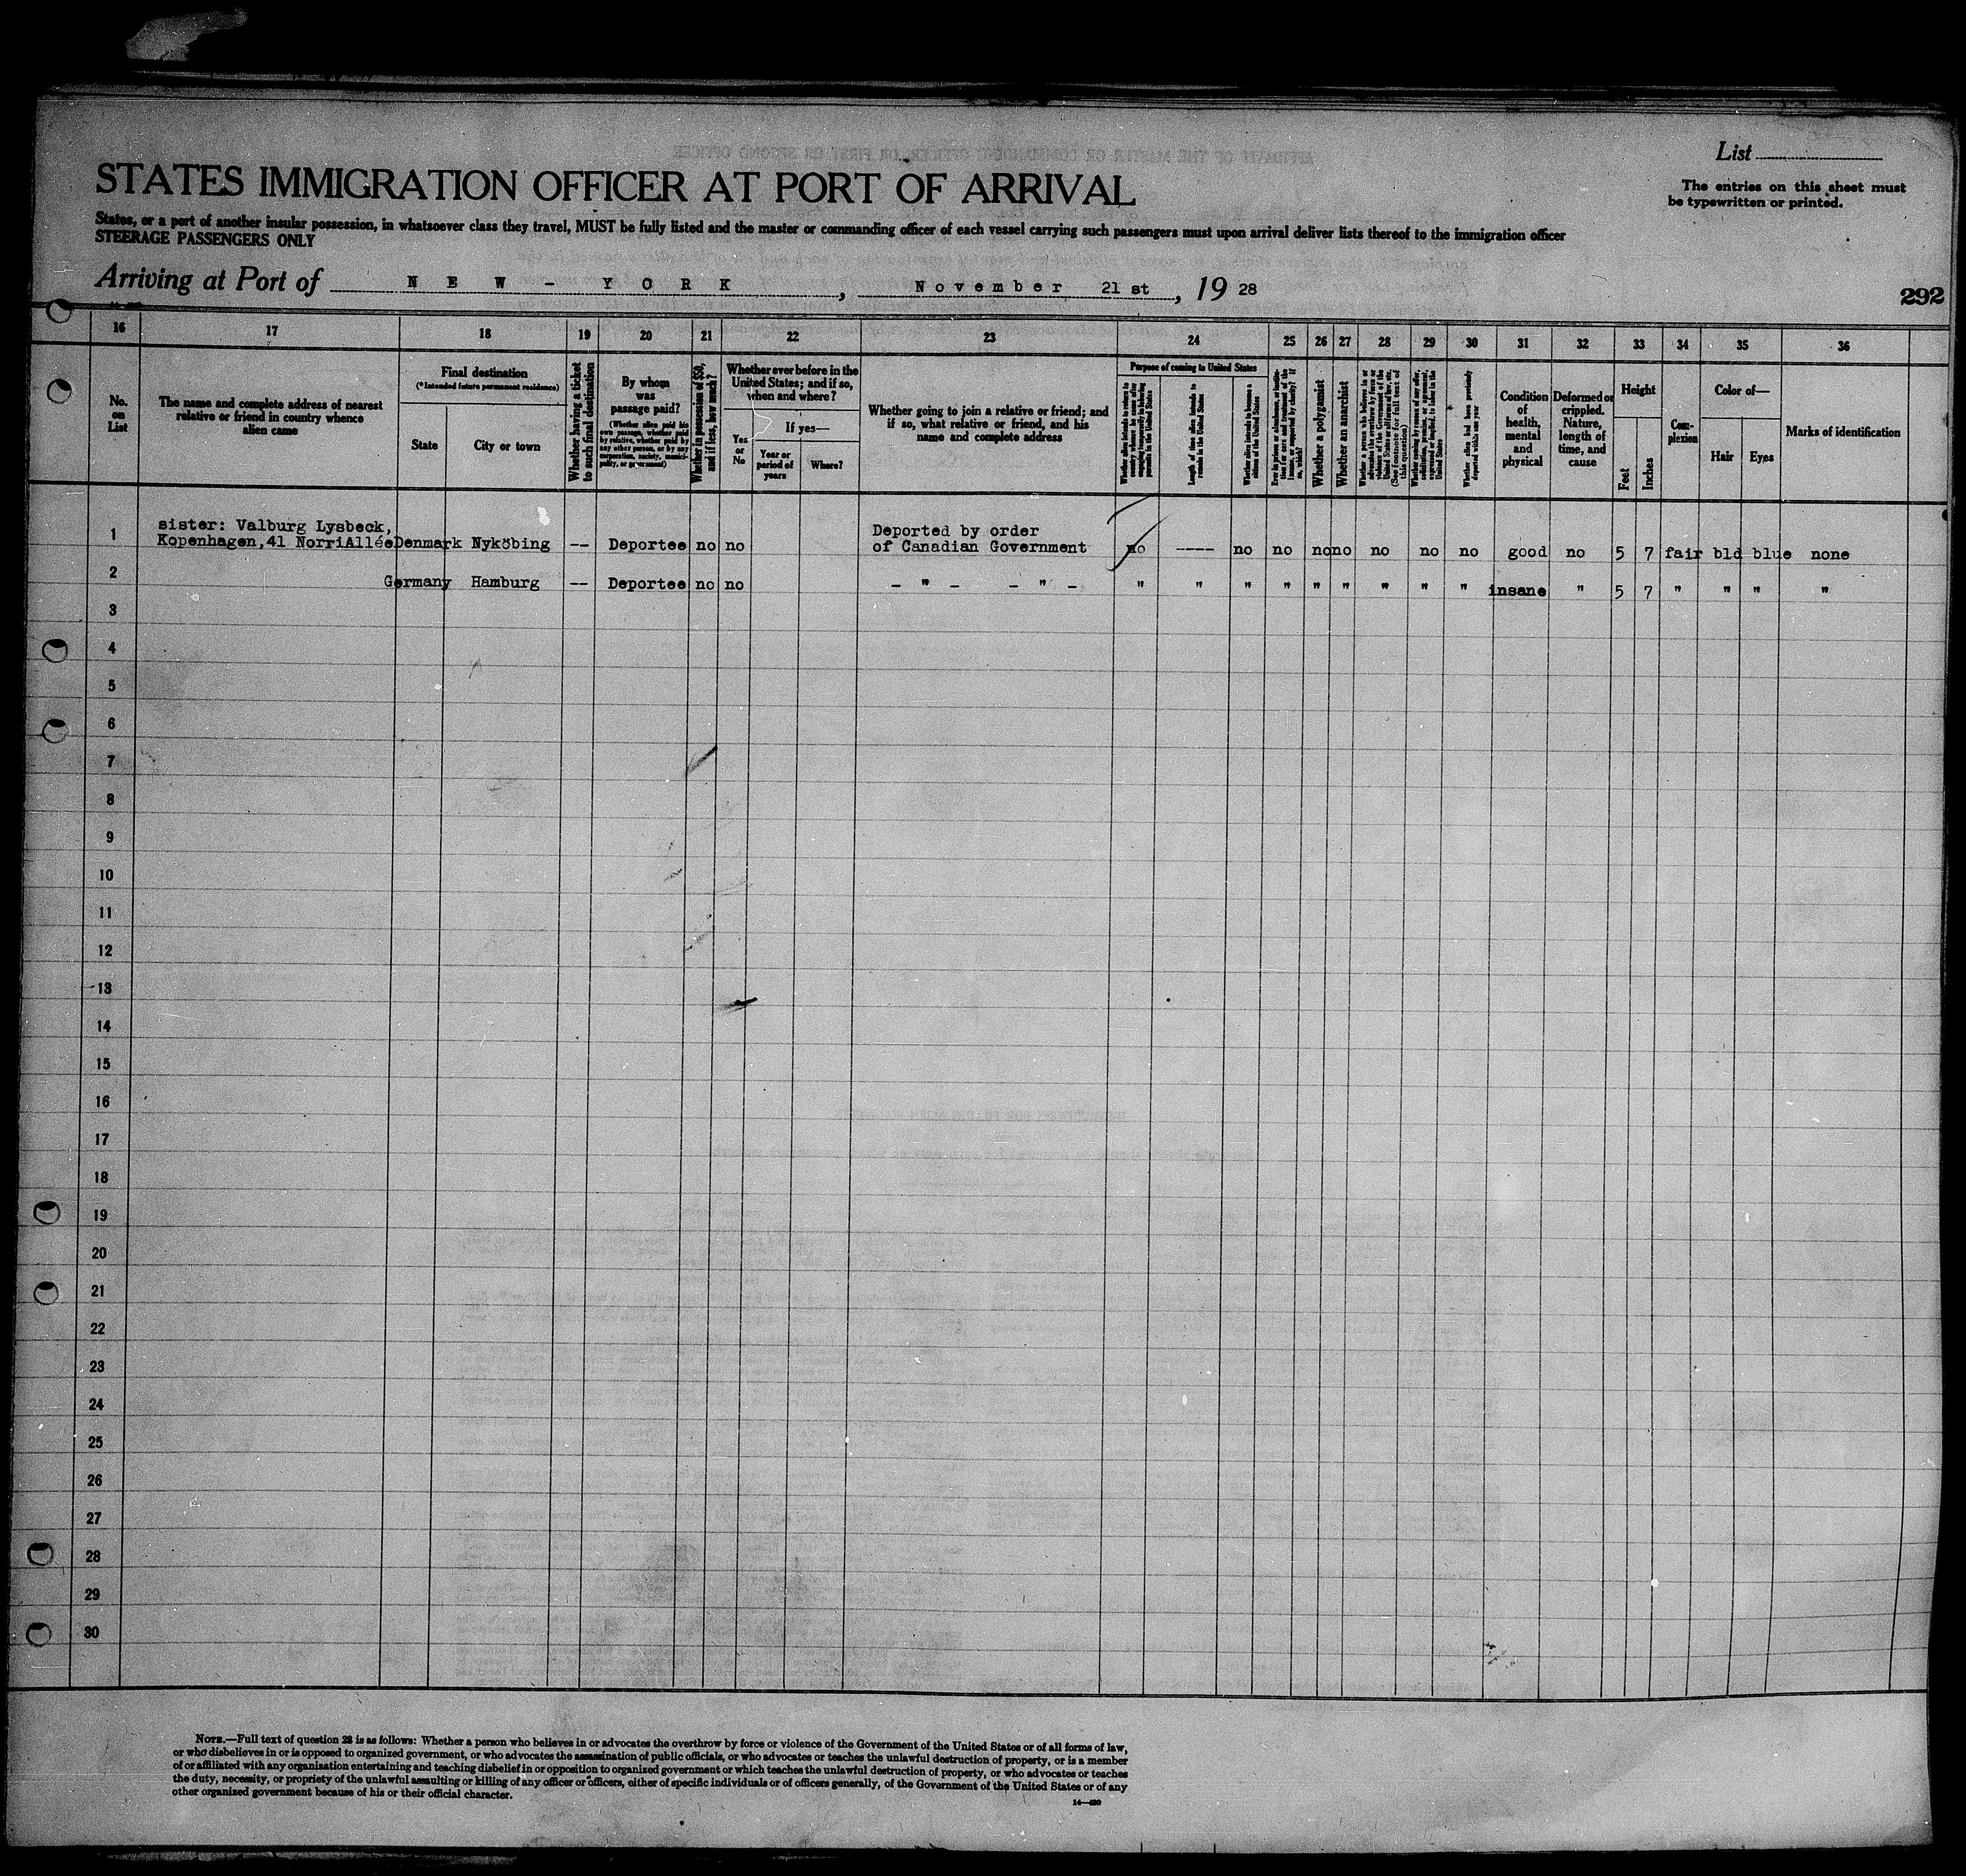 List
The entries on this sheet must
be typewritten or printed.
STATES IMMIGRATION OFFICER AT PORT OF ARRIVAL
States, or a port of another insular possession, in whatsoever class they travel, MUST be fully listed and the master or commanding officer of each vessel carrying such passengers must upon arrival deliver lists thereof to the immigration officer
STEERAGE PASSENGERS ONLY
Arriving at Port of NEW-YORK, November 21st, 1928
292
16 17 18 19 20 21 22 23 24 25 26 27 28 29 30 31 32 33 34 35 36
No.
on
List
The name and complete address of nearest
relative or friend in country whence
alien came
Final destination
(*Intended future permanent residence)
State
City or town
Whether having a ticket
to such final destination
By whom
was
passage paid?
(Whether alien paid his
own passage, whether paid
by relative, whether paid by
any other person, or by any
corporation, society, munici-
pality, or government)
Whether in possession of $50,
and if less, how much?
Whether ever before in the
United States; and if so,
when and where?
Yes
or
No
If yes—
Year or
period of
years
Where?
Whether going to join a relative or friend; and
if so, what relative or friend, and his
name and complete address
Purpose of coming to United States
Length of time alien intends to
remain in the United States
Whether a polygamist
Whether an anarchist
Condition
of
health,
mental
and
physical
Deformed or
crippled.
Nature,
length of
time, and
cause
Height
Feet
Inches
Com-
plexion
Color of—
Hair
Eyes
Marks of identification
sister: Valburg Lysbeck, Deported by order
1 Kopenhagen,41 NorriAllée Denmark Nyköbing -- Deportee no no of Canadian Government no ---- no no no no no no no good no 5 7 fair bld blue none
2 Germany Hamburg -- Deportee no no - " - - " - " " " " " " " " " insane " 5 7 " " " "
3
4
5
6
7
8
9
10
11
12
13
14
15
16
17
18
19
20
21
22
23
24
25
26
27
28
29
30
NOTE.—Full text of question 28 is as follows: Whether a person who believes in or advocates the overthrow by force or violence of the Government of the United States or of all forms of law,
or who disbelieves in or is opposed to organized government, or who advocates the assassination of public officials, or who advocates or teaches the unlawful destruction of property, or is a member
of or affiliated with any organization entertaining and teaching disbelief in or opposition to organized government or which teaches the unlawful destruction of property, or who advocates or teaches
the duty, necessity, or propriety of the unlawful assaulting or killing of any officer or officers, either of specific individuals or of officers generally, of the Government of the United States or of any
other organized government because of his or their official character.